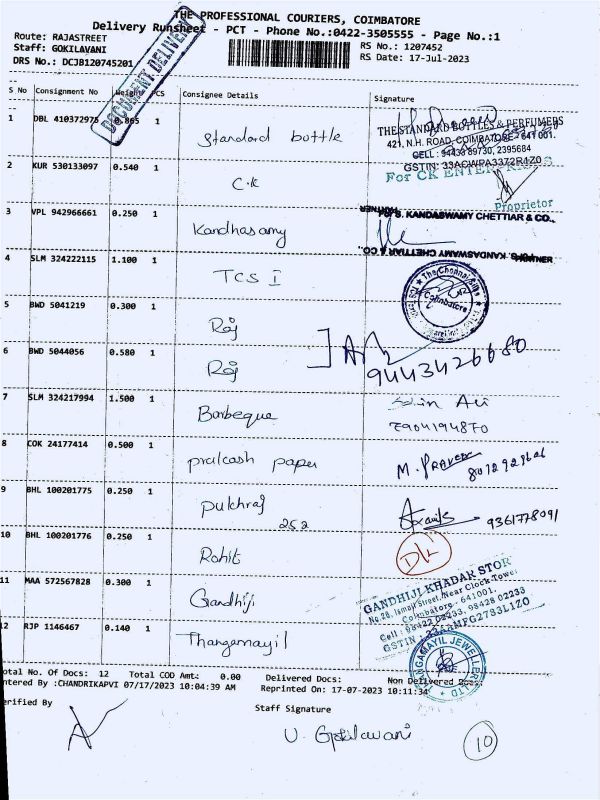 THE PROFESSIONAL COURIERS, COIMBATORE
Delivery Runsheet - PCT - Phone No.:0422-3505555 - Page No.:1
Route: RAJASTREET
RS No.: 1207452
Staff: GOKILAVANI
RS Date: 17-Jul-2023
DRS No.: DCJB120745201
DOCUMENT DELIVERY
S No Consignment No Weight PCS Consignee Details Signature
1 DBL 410372975 0.865 1 Standard bottle
THE STANDARD BOTTLES & PERFUMERS
421, N.H. ROAD, COIMBATORE - 641 001.
CELL : 94433 89730, 2395684
GSTIN: 33ACWPA3372R1Z0
2 KUR 530133097 0.540 1 C.K
For CK ENTERPRISES
Proprietor
3 VPL 942966661 0.250 1 Kandhasamy
PARTNER
S. KANDASWAMY CHETTIAR & CO.,
S. KANDASWAMY CHETTIAR & CO.,
4 SLM 324222115 1.100 1 TCS I
The Chennai Silks
Coimbatore
5 BWD 5041219 0.300 1 Raj
6 BWD 5044056 0.580 1 Raj
9443426680
7 SLM 324217994 1.500 1 Barbeque
Ali
7904194870
8 COK 24177414 0.500 1 pralcash paper
M. Praveen
9 BHL 100201775 0.250 1 pulchraj
252
9361778091
10 BHL 100201776 0.250 1 Rohit
D/L
11 MAA 572567828 0.300 1 Gandhiji
GANDHIJI KHADAR STOR
No.28, Ismail Street, Near Clock Tower
Coimbatore - 641001.
Cell : 98422 02233, 98428 02233
GSTIN : 33AAMFG2733L1ZO
12 RJP 1146467 0.140 1 Thangamayil
THANGAMAYIL JEWELLERY LTD
Total No. Of Docs: 12 Total COD Amt: 0.00 Delivered Docs: Non Delivered Docs:
Entered By :CHANDRIKAPVI 07/17/2023 10:04:39 AM Reprinted On: 17-07-2023 10:11:34
Verified By
Staff Signature
U. Gokilavani
10